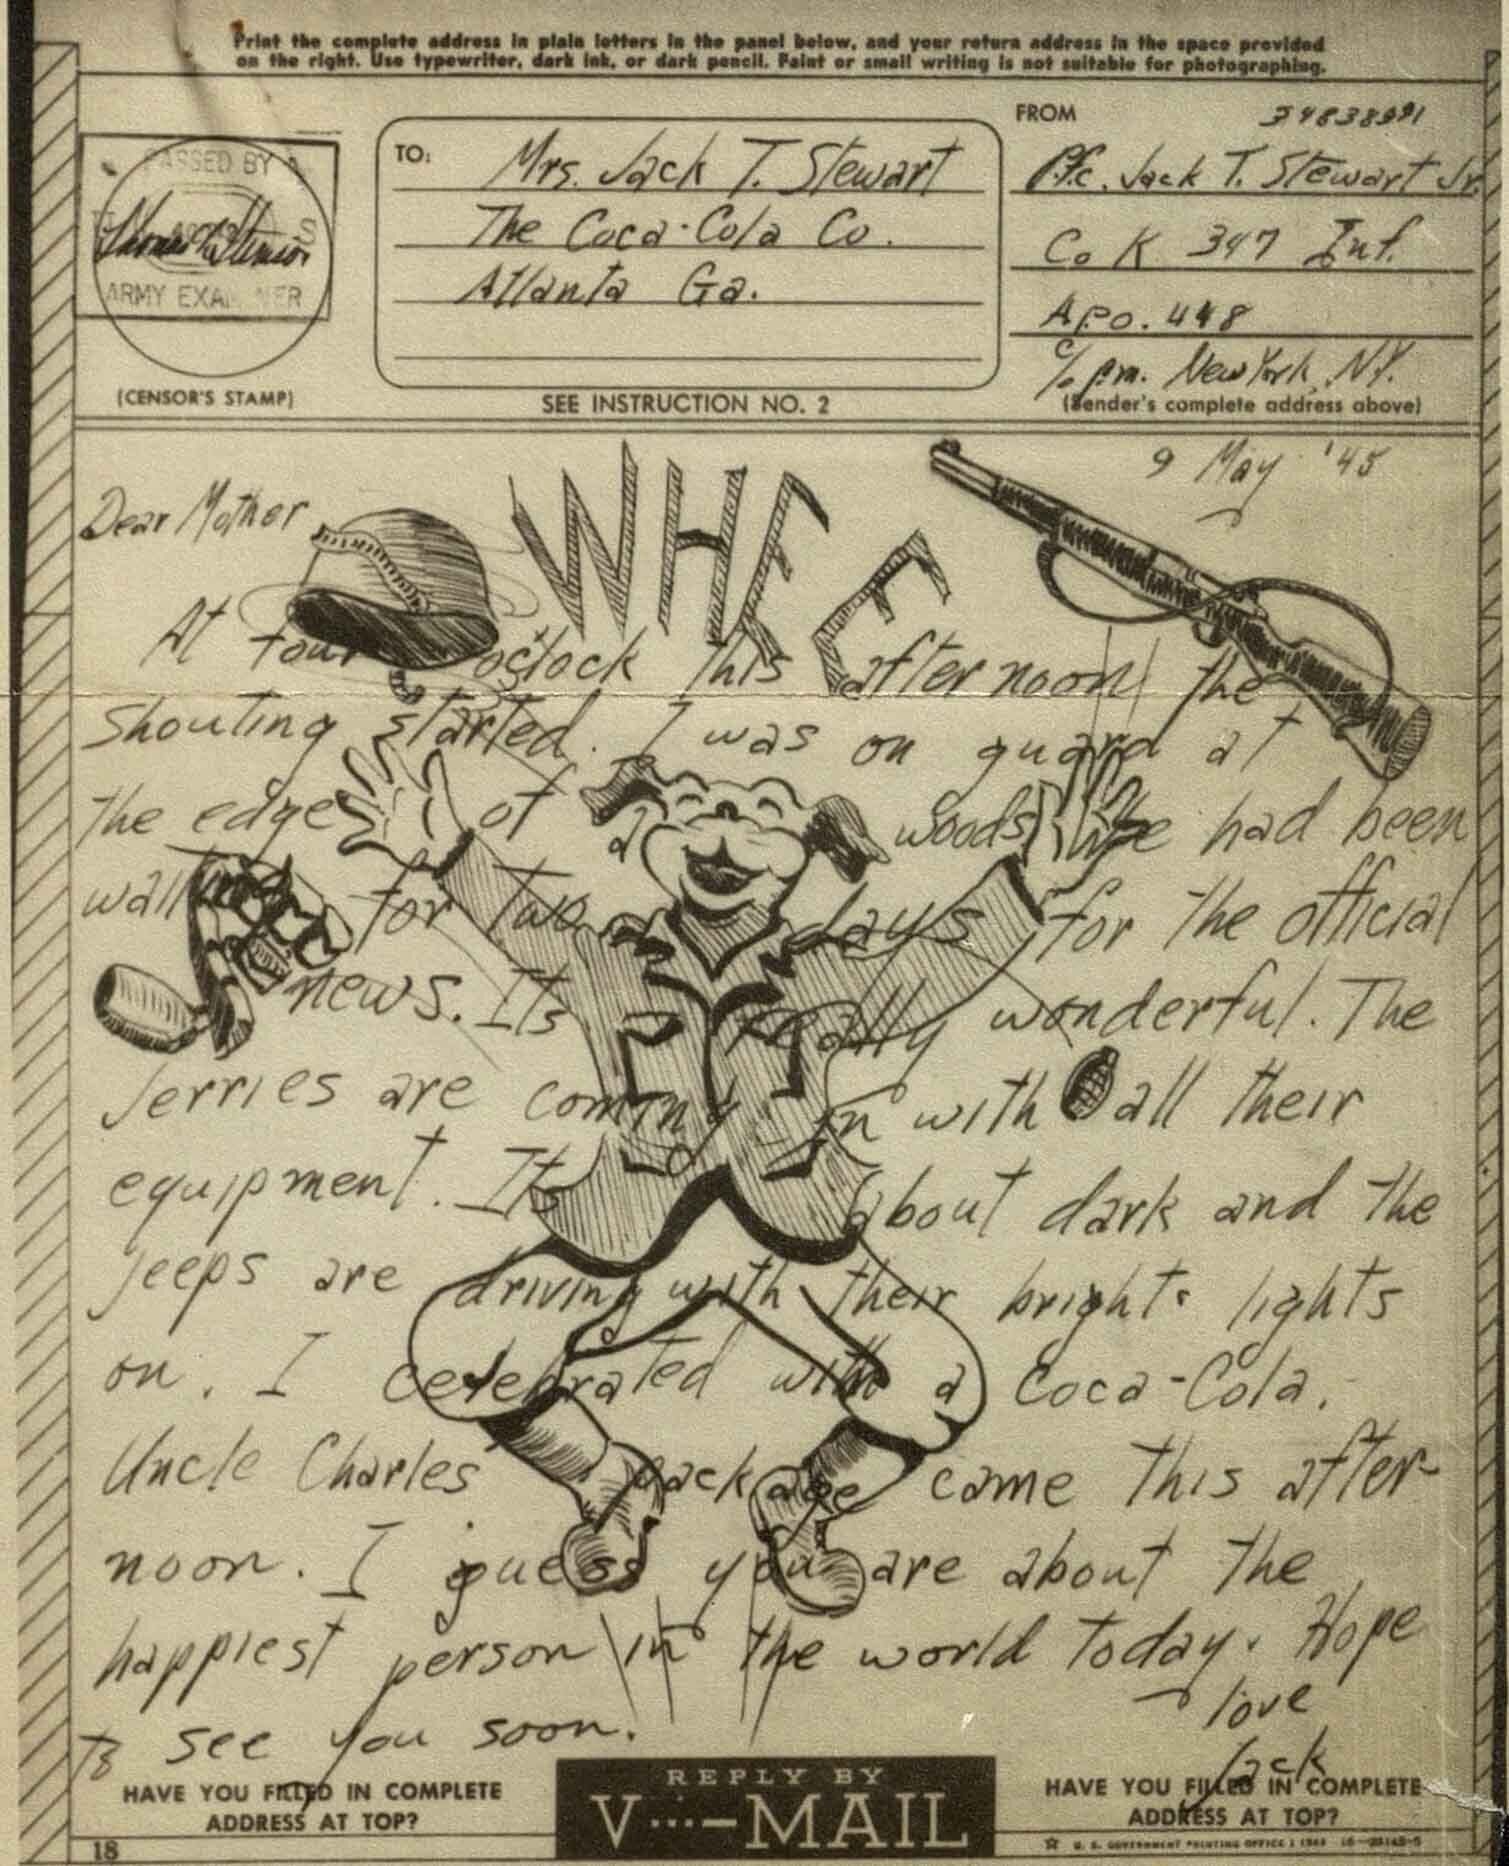 Print the complete address in plain letters in the panel below, and your return address in the space provided
on the right. Use typewriter, dark ink, or dark pencil. Faint or small writing is not suitable for photographing.
PASSED BY A
ARMY EXAMINER
(CENSOR'S STAMP)
TO:
Mrs. Jack T. Stewart
The Coca-Cola Co.
Atlanta Ga.
SEE INSTRUCTION NO. 2
FROM
Pfc. Jack T. Stewart Jr.
Co K 347 Inf.
Apo. 448
c/o p.m. New York, N.Y.
(Sender's complete address above)
9 May '45
Dear Mother
WHEE
At four o'clock this afternoon the
shouting started. I was on guard at
the edge of a woods. We had been
waiting for two days for the official
news. Its really wonderful. The
Jerries are coming in with all their
equipment. Its about dark and the
jeeps are driving with their bright lights
on. I celebrated with a Coca-Cola.
Uncle Charles' package came this after-
noon. I guess you are about the
happiest person in the world today. Hope
to see you soon.
love
Jack
HAVE YOU FILLED IN COMPLETE
ADDRESS AT TOP?
REPLY BY
V···—MAIL
HAVE YOU FILLED IN COMPLETE
ADDRESS AT TOP?
18
U. S. GOVERNMENT PRINTING OFFICE